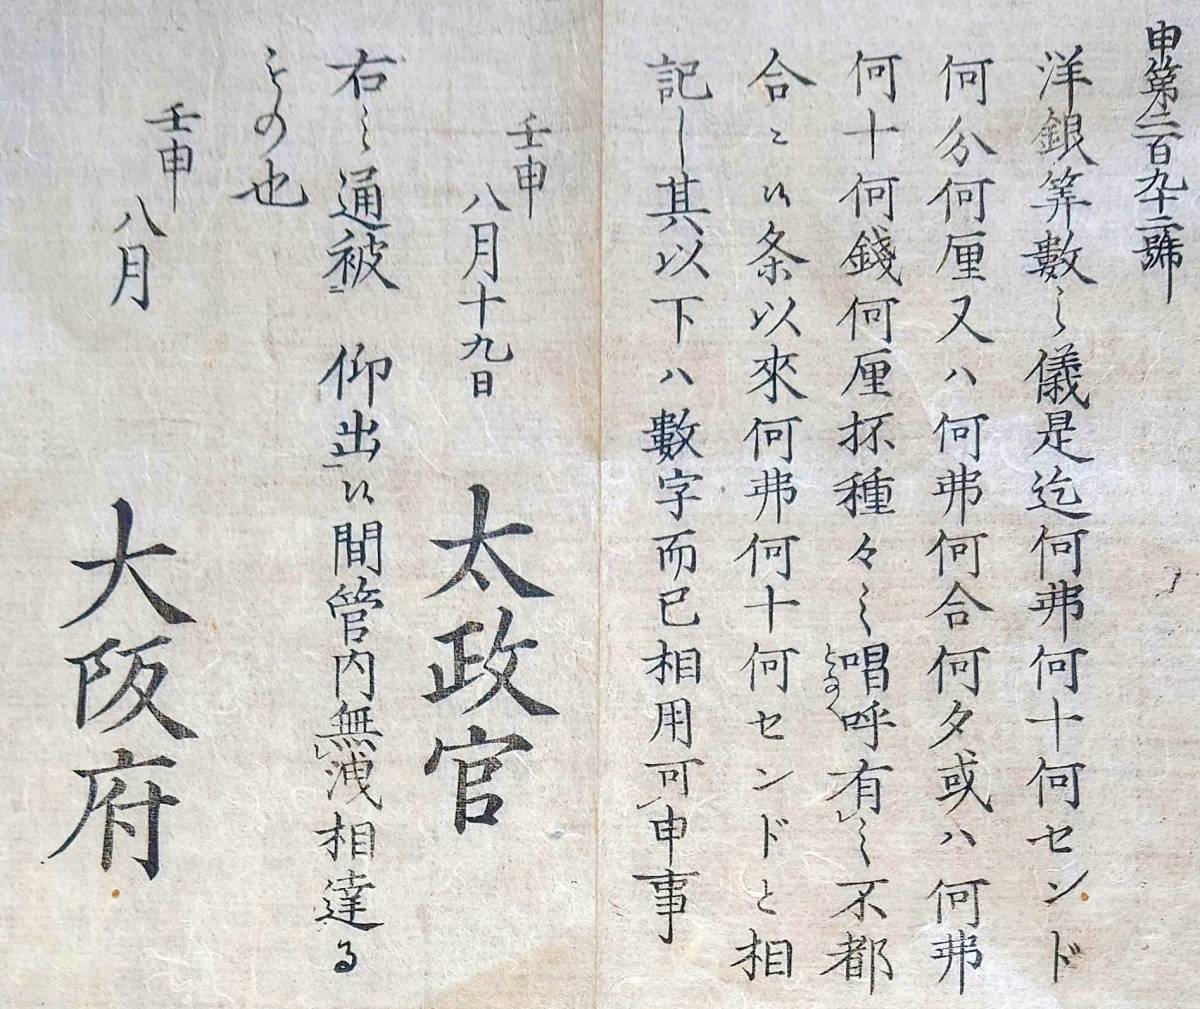 申第二百九十二號
洋銀筭數之儀是迄何弗何十何センド
何分何厘又ハ何弗何合何夕或ハ何弗
何十何錢何厘抔種々之唱呼有之不都
となへ
合ニ候条以來何弗何十何センドと相
記し其以下ハ數字而已相用可申事
壬申
八月十九日
太政官
右之通被 仰出候間管内無洩相達る
もの也
壬申
八月
大阪府